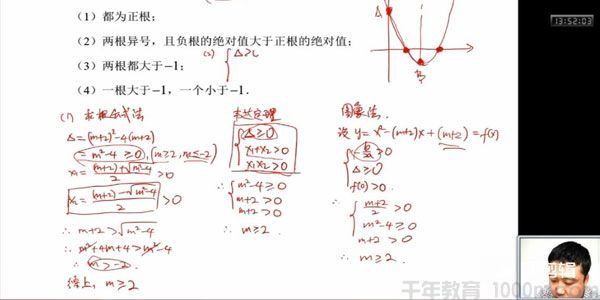 13:52:03
（1）都为正根；
（2）两根异号，且负根的绝对值大于正根的绝对值；
（3）两根都大于-1；
（4）一根大于-1，一个小于-1．
(2) { Δ≥
A
B
(1) 求根公式法
Δ=(m+2)²-4(m+2)
=m²-4≥0, (m≥2, m≤-2)
x₁=(m+2)+√(m²-4)/2 >0
x₂=(m+2)-√(m²-4)/2 >0
∴ m+2>√(m²-4)
∴ m²+4m+4>m²-4
∴ m>-2.
综上, m≥2
韦达定理
{ Δ≥0
x₁+x₂>0
x₁x₂>0
∴ { m²-4≥0
m+2>0
m+2>0
∴ m≥2.
图象法.
设 y=x²-(m+2)x+(m+2)=f(x)
>0
Δ≥0
f(0)>0.
∴ { (m+2)/2 >0
m²-4≥0
m+2>0
∴ m≥2.
千年教育